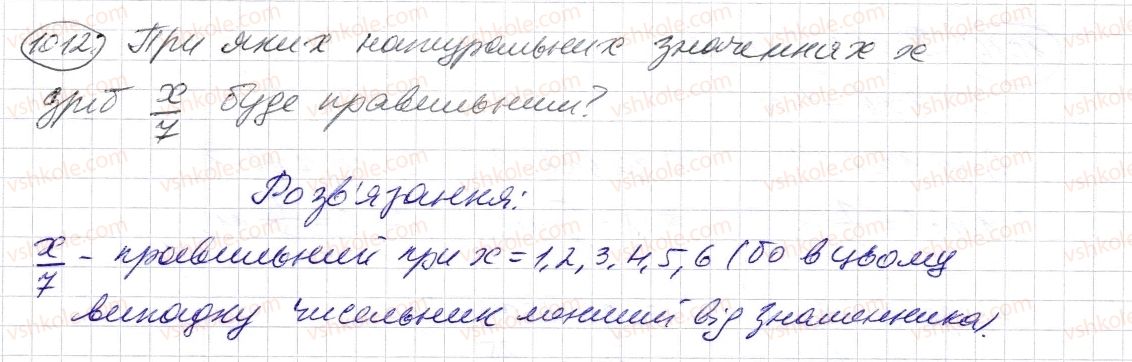 1012. При яких натуральних значеннях x
дріб x/7 буде правильним?
Розв'язання:
x/7 - правильний при x = 1, 2, 3, 4, 5, 6 (бо в цьому
випадку чисельник менший від знаменника).